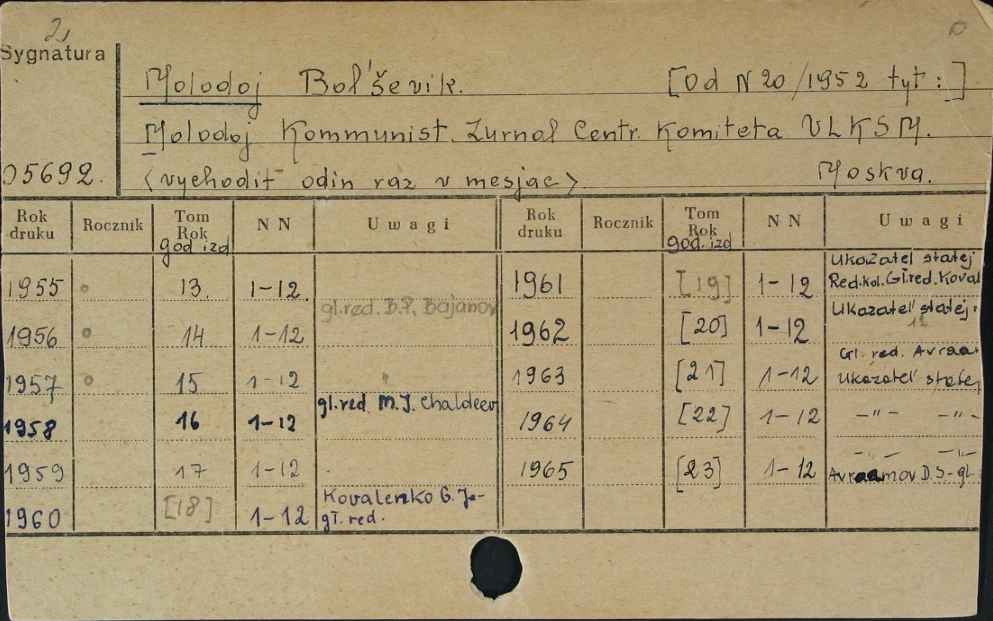 2
Sygnatura
Molodoj Bol'ševik. [Od N 20/1952 tyt:]
Molodoj Kommunist. Žurnal Centr. Komiteta VLKSM.
05692. <vychodit odin raz v mesjac> Moskva.
Rok druku Rocznik Tom Rok god izd NN Uwagi Rok druku Rocznik Tom Rok god. izd NN Uwagi
1955 o 13. 1-12. 1961 [19] 1-12 Ukazatel statej
Red.kol. Gł.red. Koval
gl.red. B.P. Bajanov Ukazatel' statej.
1956 o 14 1-12 1962 [20] 1-12 12
Gl. red. Avraa
1957 o 15 1-12 1963 [21] 1-12 Ukazatel' statej
gl.red M.J. Chaldeev
1958 16 1-12 1964 [22] 1-12 -"- -"-
-"- -"-
1959 17 1-12 1965 [23] 1-12 Avraamov D.S-gł.
Kovalenko G. Je-
1960 [18] 1-12 gł. red.